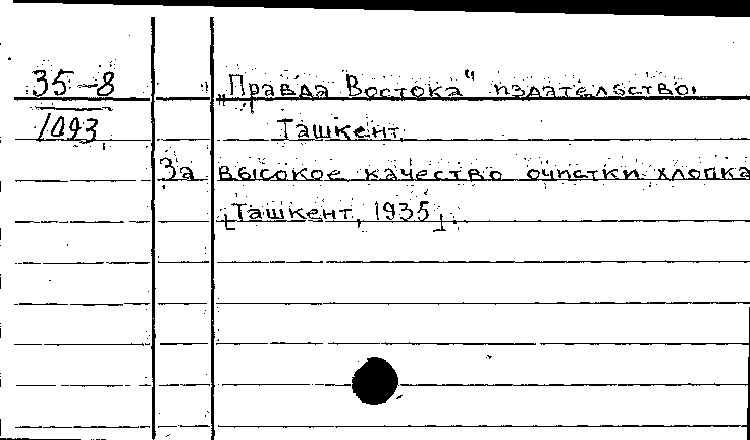 35-8 „Правда Востока“ издательство.
1093 Ташкент.
За высокое качество очистки хлопка
[Ташкент, 1935].